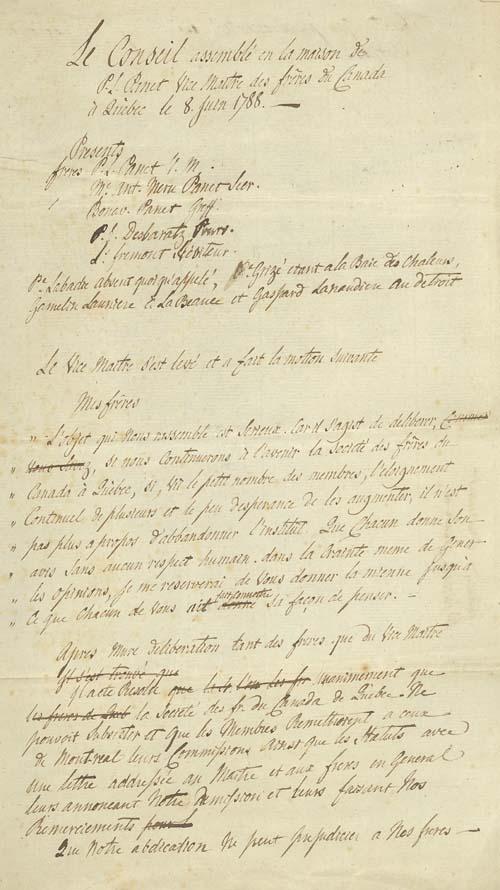 Le Conseil assemblé en la maison de
P. L. Panet Vice Maitre des frères du Canada
à Québec le 8. Juin 1788. —
Presents
freres P. L. Panet V. M.
Me. Ant. Panet Secr.
Bonav. Panet Greff.
P. Desbaratz
L. fremont
Pe. Labadie absent quoiqu'appelé, Grizé etant a la Baie des Chaleurs,
Gamelin Launiere & La Beauce et Gaspard Lanaudiere au detroit
Le Vice Maitre s'est levé et a fait la motion suivante
Mes frères
" L'objet qui nous rassemble est serieux. Car il s'agist de deliberer,
" si nous Continuerons à l'avenir la Société des frères du
" Canada à Québec, si, vû le petit nombre des membres, l'eloignement
" Continuel de plusieurs et le peu d'esperance de les augmenter, il n'est
" pas plus a propos d'abbandonner l'institut. Que Chacun donne son
" avis sans aucun respect humain. dans la Crainte meme de gener
" les opinions, je me reserverai de vous donner la mienne jusqu'à
" Ce que chacun de vous ait sa façon de penser. —
Apres mure deliberation tant des freres que du Vice Maitre
Il s'est trouvé que
il a eté Resolu que unanimement que
les frères de la Societé des fr. du Canada de Québec. Ne
pouvoit subsister et que les Membres Remettroient a ceux
de Montreal leurs Commissions ainsi que les Statuts avec
une lettre addressée au Maitre et aux freres en General
leurs annonceant Notre demission et leurs faisant Nos
Remerciements
Que Notre abdication Ne peut prejudicier a Nos freres —